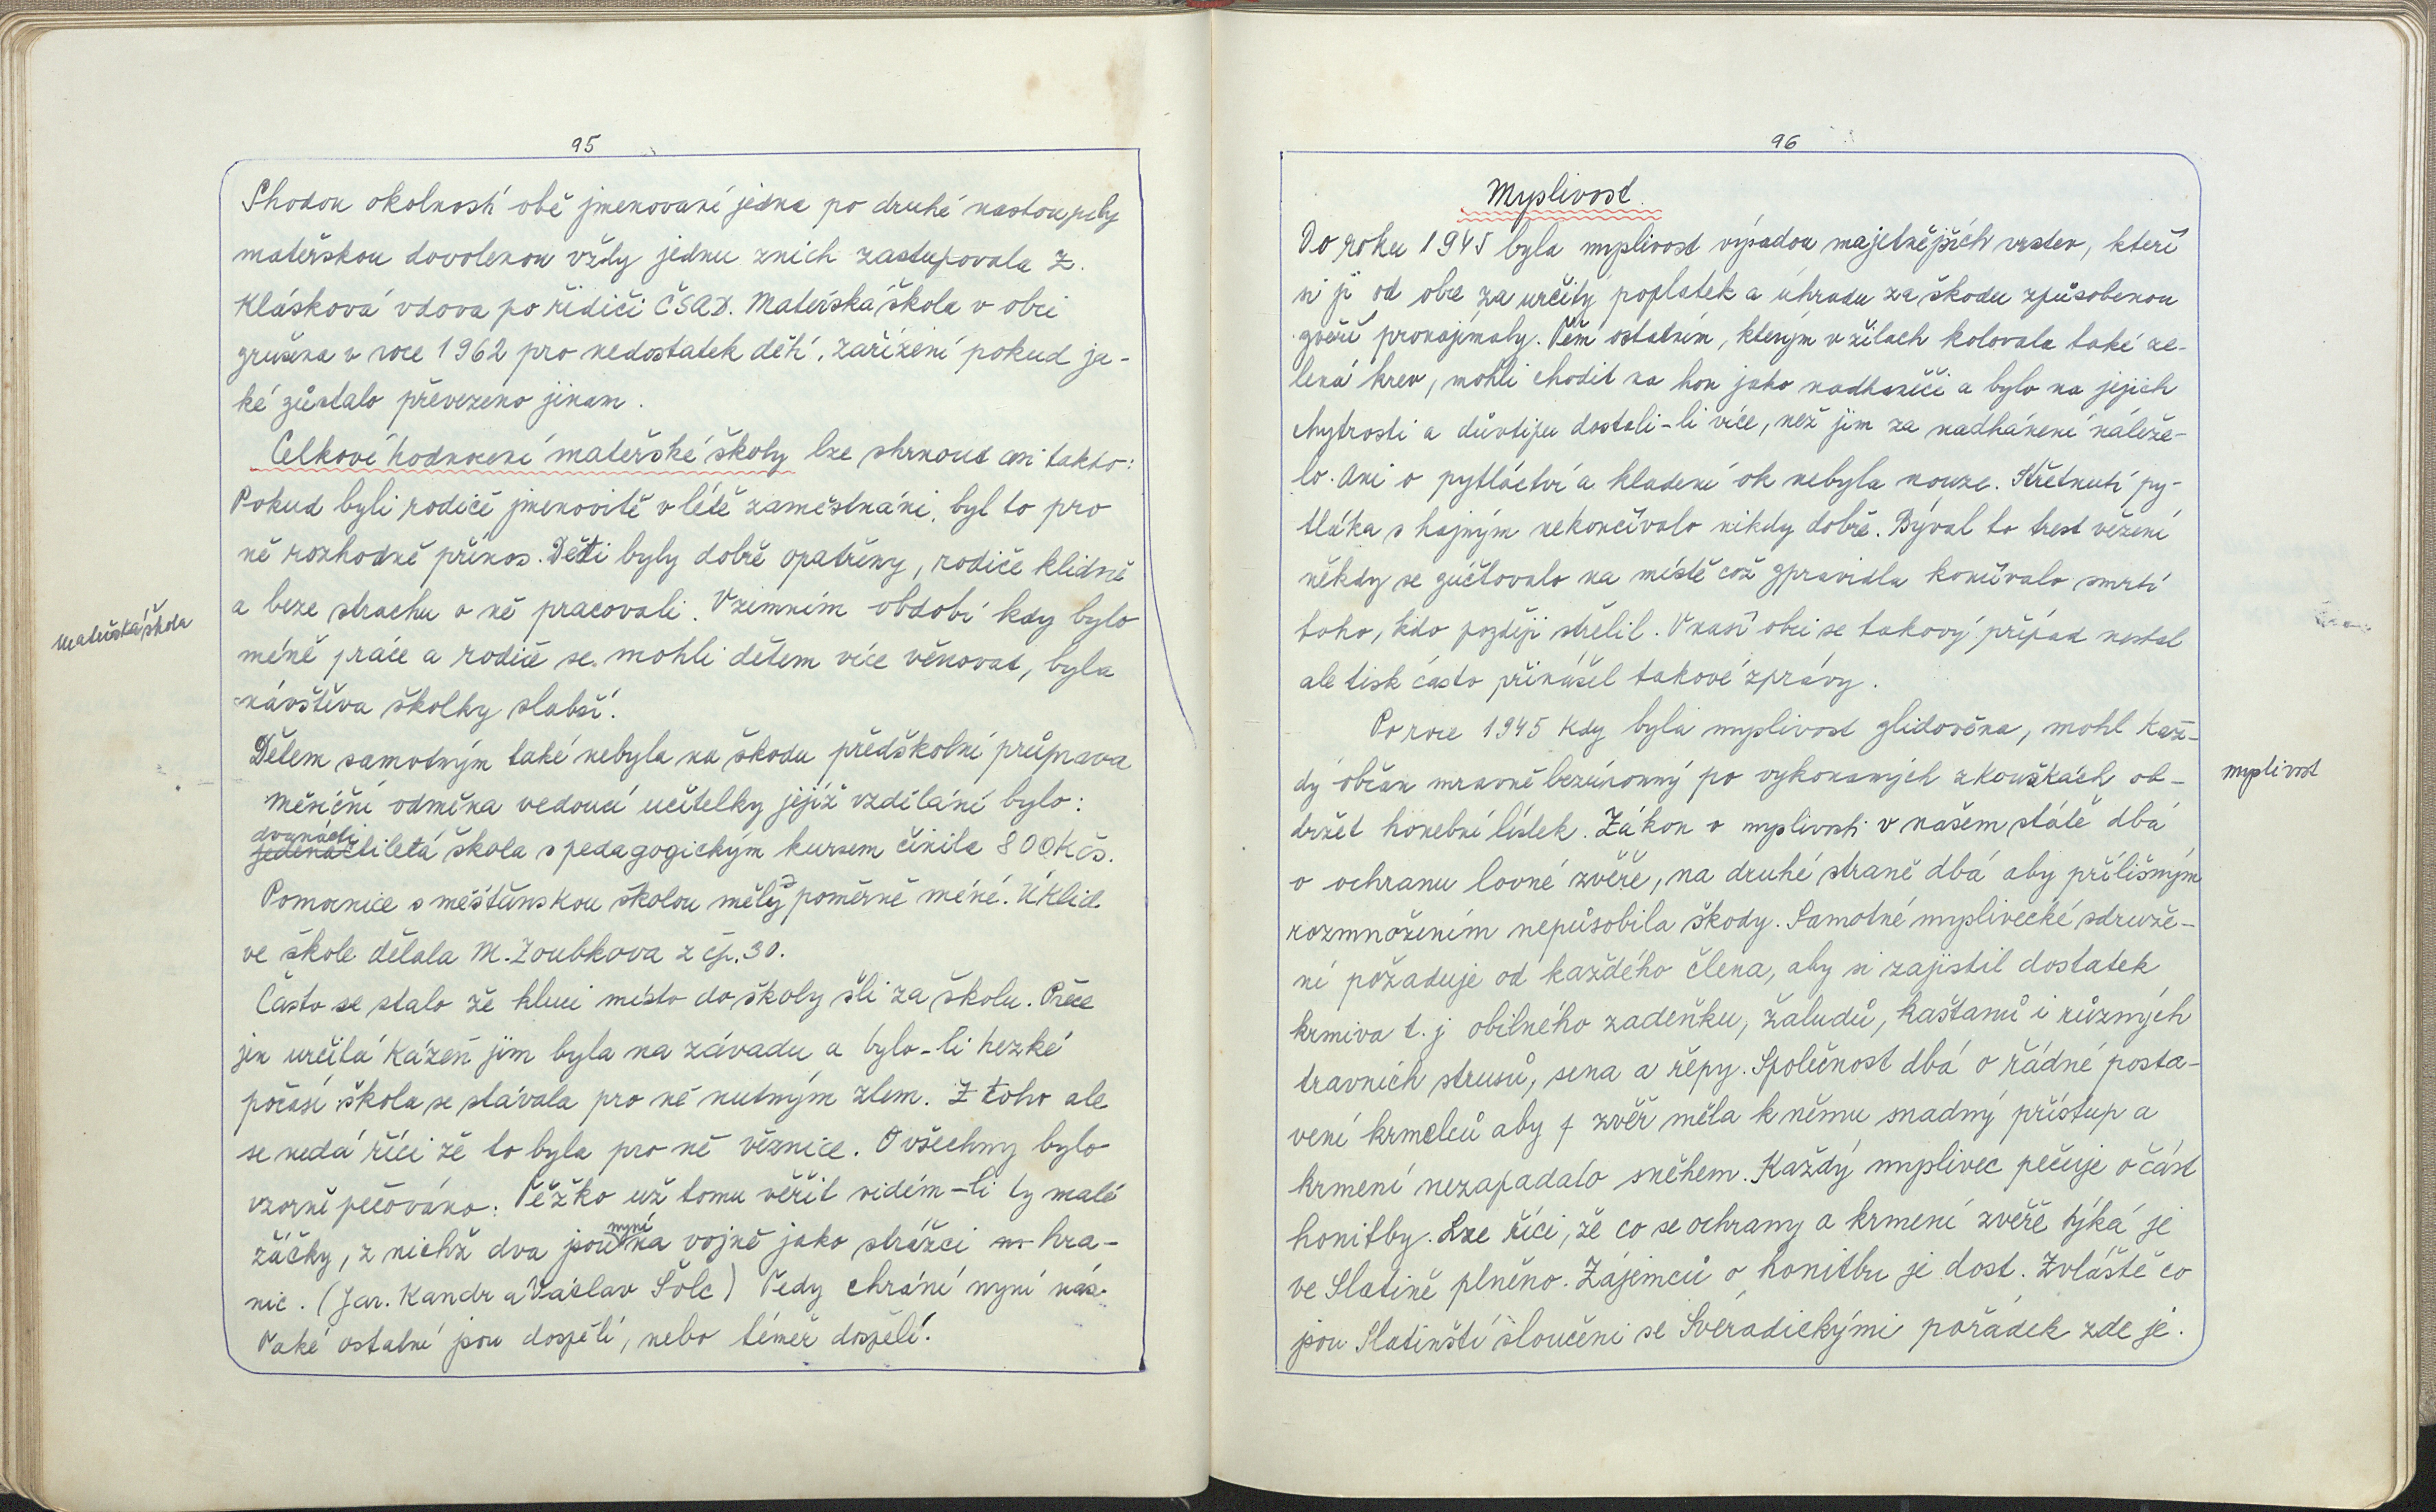 95
Shodou okolností obě jmenované jedna po druhé nastoupily
mateřskou dovolenou vždy jednu znich zastupovala Z.
Klásková vdova po řidiči ČSAD. Mateřská škola v obci
zrušena v roce 1962 pro nedostatek dětí. Zařízení pokud ja-
ké zůstalo převezeno jinam.
Celkové hodnocení mateřské školy lze shrnout asi takto:
Pokud byli rodiče jmenovitě v létě zaměstnáni, byl to pro
ně rozhodně přínos. Děti byly dobře opatřeny, rodiče klidně
a beze strachu o ně pracovali. Vzimním období kdy bylo
mateřská škola
méně práce a rodiče se mohli dětem více věnovat, byla
návštěva školky slabší.
Dětem samotným také nebyla na škodu předškolní průprava
Měsíční odměna vedoucí učitelky jejíž vzdělání bylo:
dvanácti
jedenáctiletá škola s pedagogickým kursem činila 800 Kčs.
Pomocnice s měšťanskou školou měly poměrně méně. Úklid
ve škole dělala M. Zoubkova z čp. 30.
Často se stalo že kluci místo do školy šli za školu. Přece
jen určitá kázeň jim byla na závadu a bylo-li hezké
počasí škola se stávala pro ně nutným zlem. Z toho ale
se nedá říci že to byla pro ně věznice. O všechny bylo
vzorně pečováno. Těžko už tomu věřit vidím-li ty malé
nyní
žáčky, z nichž dva jsou na vojně jako strážci na hra-
nic. (Jar. Kandr a Václav Šolc) Tedy chrání nyní nás.
Také ostatní jsou dospělí, nebo téměř dospělí.
96
Myslivost.
Do roku 1945 byla myslivost výsadou majetnějších vrstev, kteří
si ji od obce za určitý poplatek a úhradu za škodu způsobenou
zvěří pronajímaly. Těm ostatním, kterým v žilach kolovala také ze-
lená krev, mohli chodit na hon jako nadhaněči a bylo na jejich
chytrosti a důvtipu dostali-li více, než jim za nadhánění náleže-
lo. Ani o pytláctví a kladení ok nebyla nouze. Střetnutí py-
tláka s hajným nekončívalo nikdy dobře. Býval to trest vězení
někdy se zúčtovalo na místě což zpravidla končívalo smrtí
toho, kdo později střelil. Vnaší obci se takový případ nestal
ale tisk často přinášel takové zprávy.
Po roce 1945 kdy byla myslivost zlidověna, mohl kaž-
dý občan mravně bezúhonný po vykonaných zkouškách ob-
myslivost
držet honební lístek. Zákon o myslivosti v našem státě dbá
o ochranu lovné zvěře, na druhé straně dbá aby přílišným
rozmnožením nepůsobila škody. Samotné myslivecké sdruže-
ní požaduje od každého člena, aby si zajistil dostatek
krmiva t. j obilného zadeňku, žaludů, kaštanů i různých
travních strusů, sena a řepy. Společnost dbá o řádné posta-
vení krmelců aby zvěř měla k němu snadný přístup a
krmení nezapadalo sněhem. Každý myslivec pečuje o část
honitby. Lze říci, že co se ochrany a krmení zvěře týká je
ve Slatině plněno. Zájemců o honitbu je dost. Zvláště co
jsou Slatinští sloučeni se Svéradickými pořádek zde je.